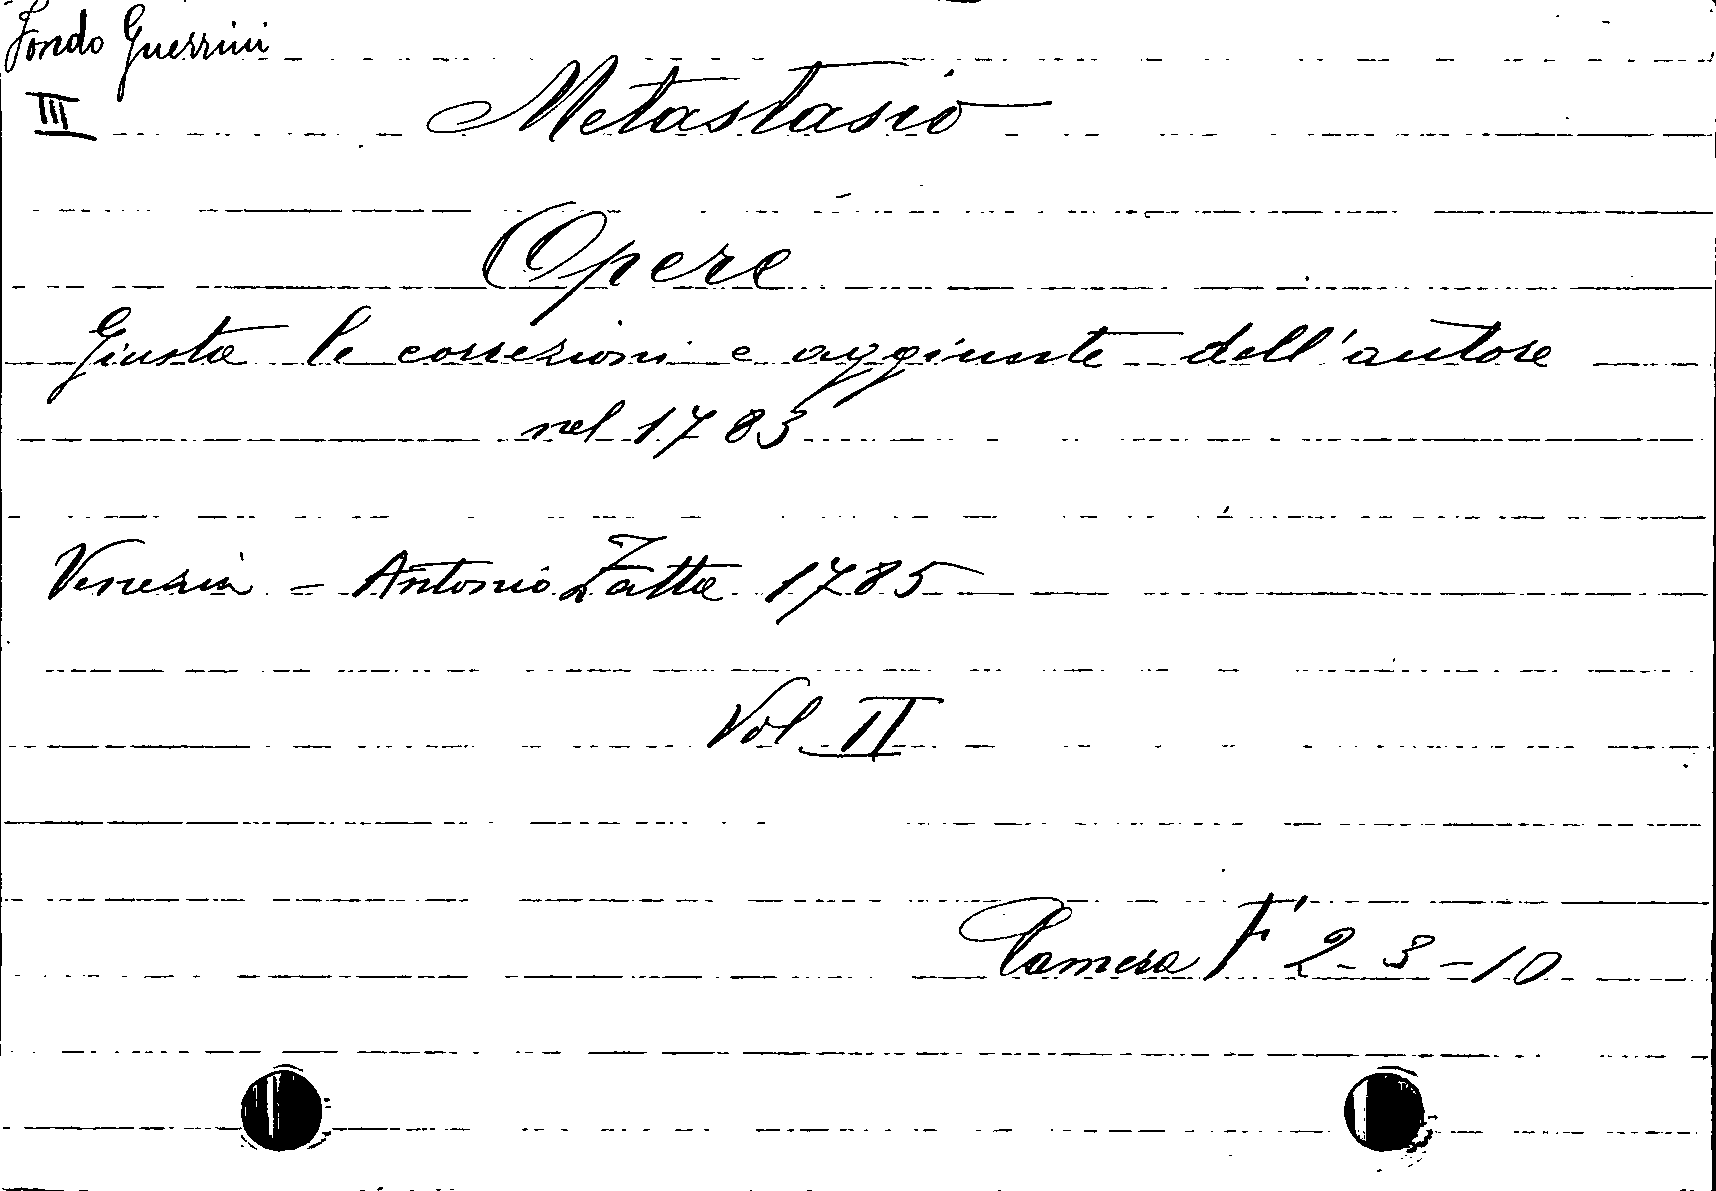 Fondo Guerrini
III
Metastasio
Opere
Giusta le correzioni e aggiunte dell'autore
nel 1783
Venezia - Antonio Zatta 1785
Vol II
Camera F 2-3-10